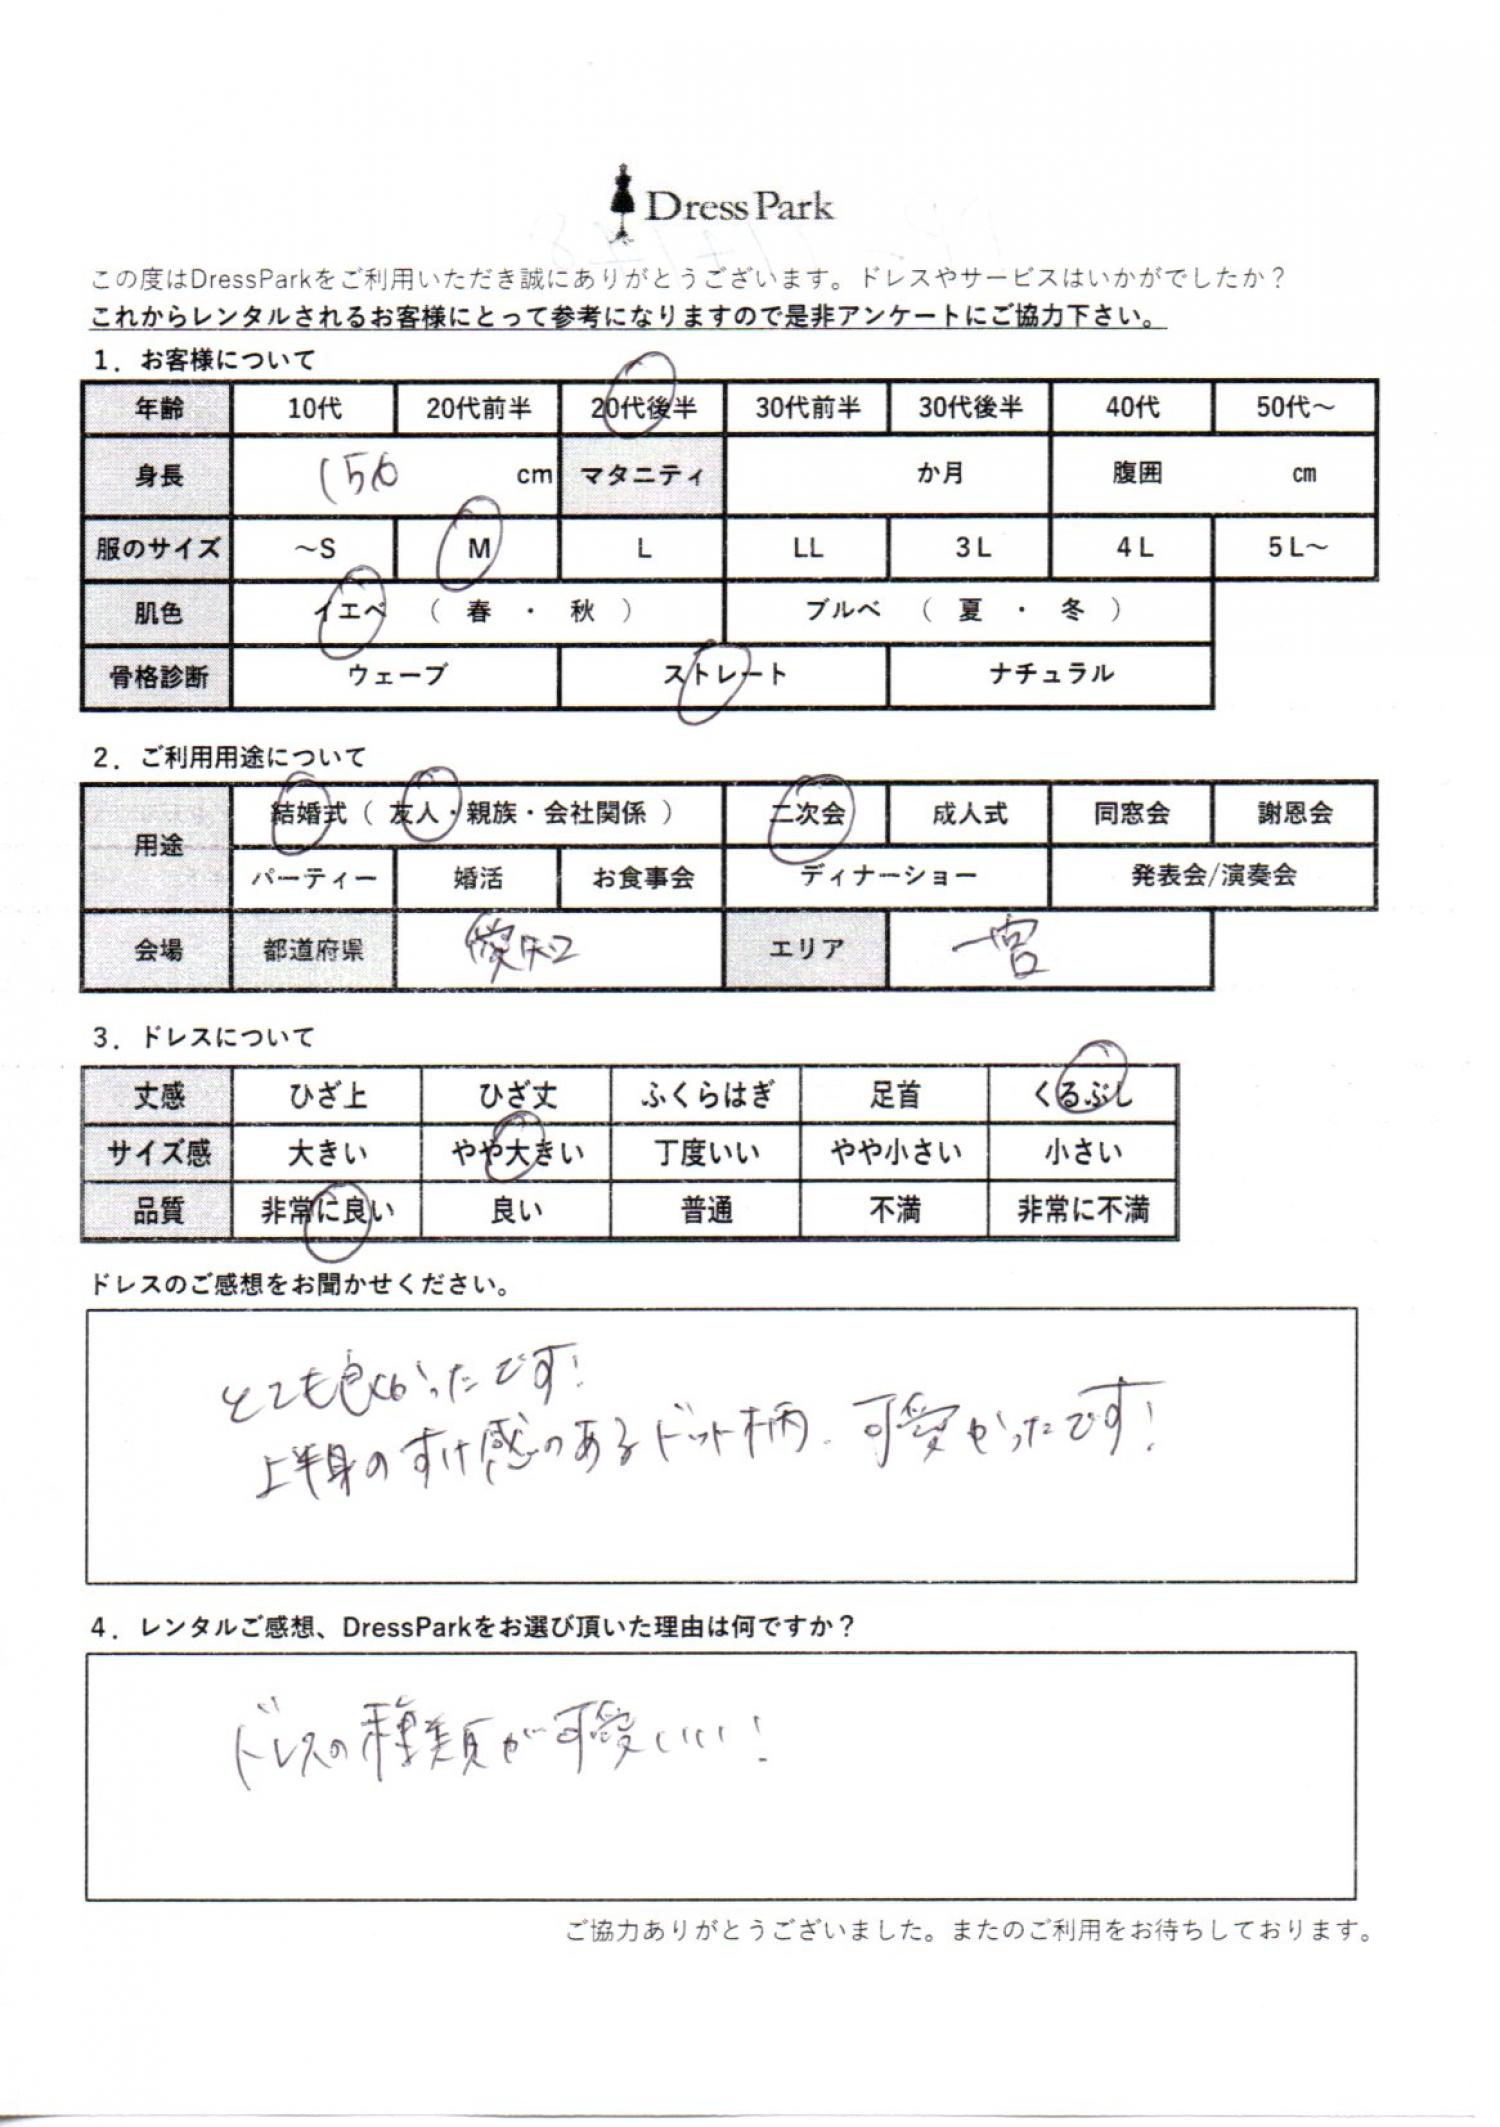 Dress Park
この度はDressParkをご利用いただき誠にありがとうございます。ドレスやサービスはいかがでしたか？
これからレンタルされるお客様にとって参考になりますので是非アンケートにご協力下さい。
1．お客様について
年齢 10代 20代前半 20代後半 30代前半 30代後半 40代 50代～
身長 150 cm マタニティ か月 腹囲 cm
服のサイズ ～S M L LL 3L 4L 5L～
肌色 イエベ （ 春 ・ 秋 ） ブルベ （ 夏 ・ 冬 ）
骨格診断 ウェーブ ストレート ナチュラル
2．ご利用用途について
用途 結婚式（ 友人・親族・会社関係 ） 二次会 成人式 同窓会 謝恩会
パーティー 婚活 お食事会 ディナーショー 発表会/演奏会
会場 都道府県 愛知 エリア 一宮
3．ドレスについて
丈感 ひざ上 ひざ丈 ふくらはぎ 足首 くるぶし
サイズ感 大きい やや大きい 丁度いい やや小さい 小さい
品質 非常に良い 良い 普通 不満 非常に不満
ドレスのご感想をお聞かせください。
とても良かったです！
上半身のすけ感のあるドット柄、可愛かったです！
4．レンタルご感想、DressParkをお選び頂いた理由は何ですか？
ドレスの種類が可愛いい！
ご協力ありがとうございました。またのご利用をお待ちしております。